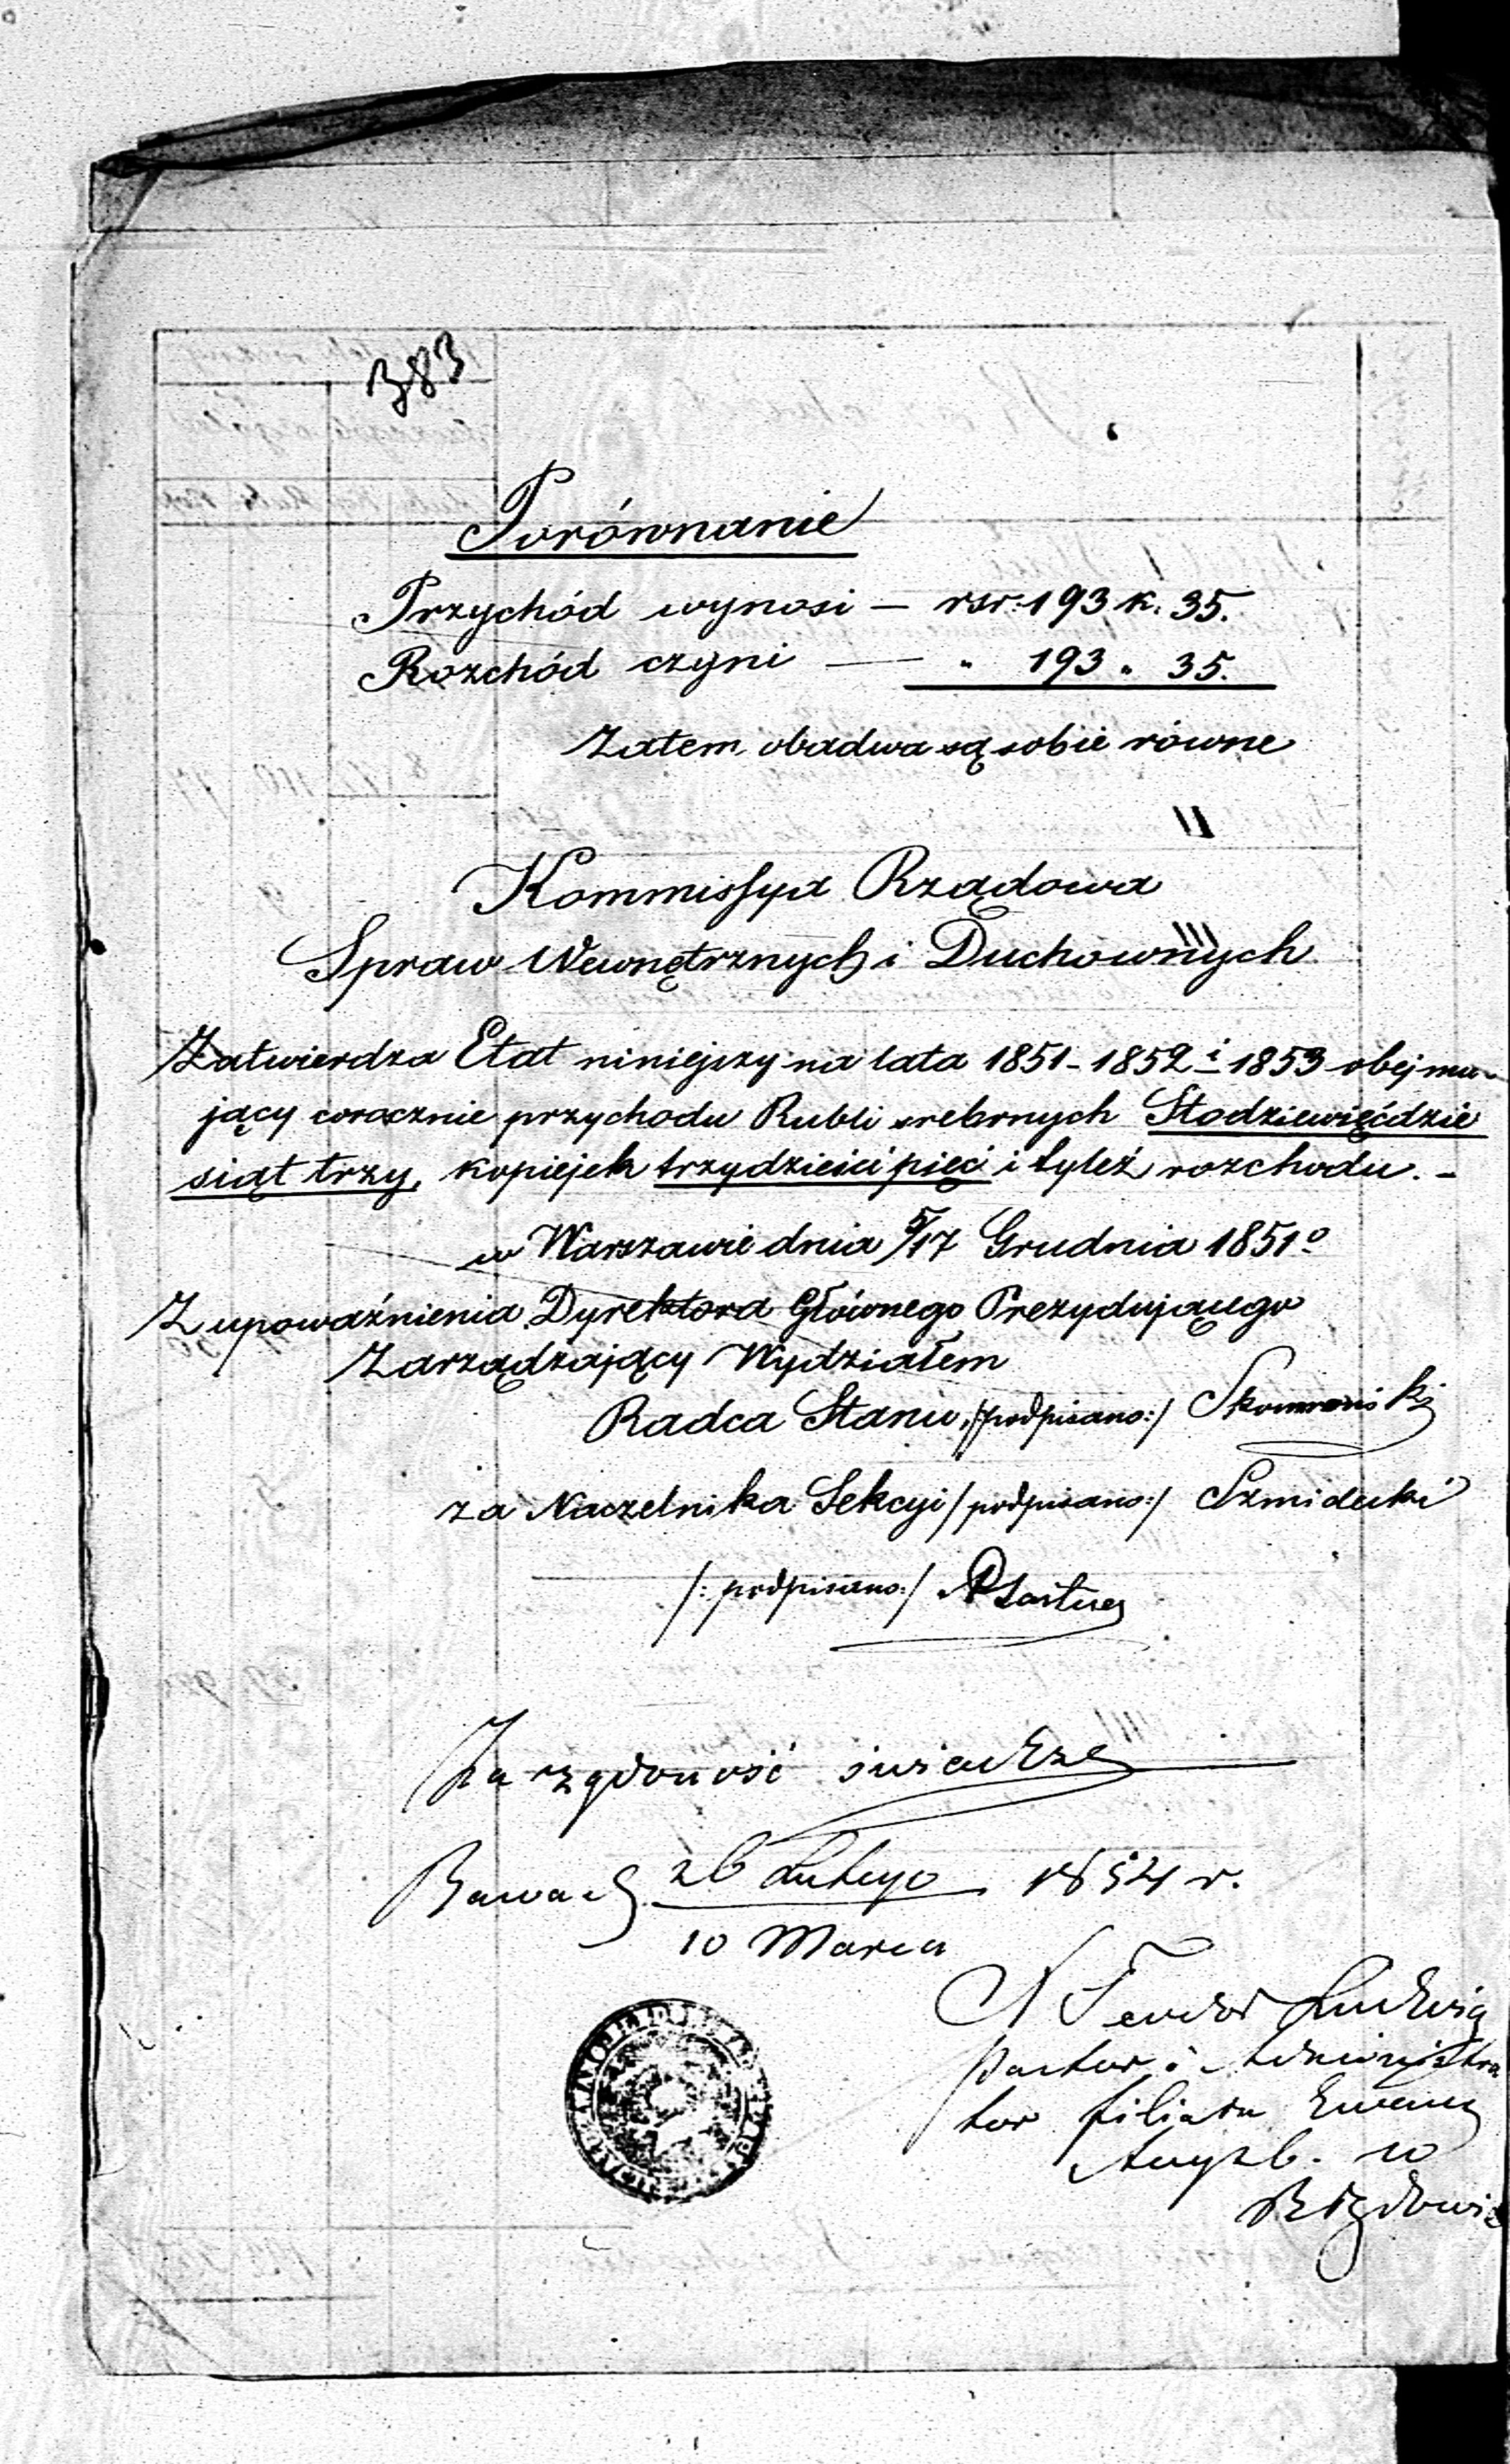 383
Porównanie
Przychód wynosi — rsr. 193 k. 35.
Rozchód czyni — " 193 " 35.
Zatem obadwa są sobie równe
Kommissya Rządowa
Spraw Wewnętrznych i Duchownych
Zatwierdza Etat niniejszy na lata 1851 - 1852 i 1853 obejmu-
jący corocznie przychodu Rubli srebrnych Stodziewięćdzie
siąt trzy, kopiejek trzydzieści pięć i tyleż rozchodu. -
w Warszawie dnia 5/17 Grudnia 1851o
Z upoważnienia Dyrektora Głównego Prezydującego
Zarządzający Wydziałem
Radca Stanu, /:podpisano:/
za Naczelnika Sekcyi /podpisano:/ Szmidecki
/: podpisano:/
Za zgodność świadczę
Rawa d. 26 Lutego 1854 r.
10 Marca
Teodor Ludwig
Pastor i Administra
tor filiału Ewang
Augsb. w